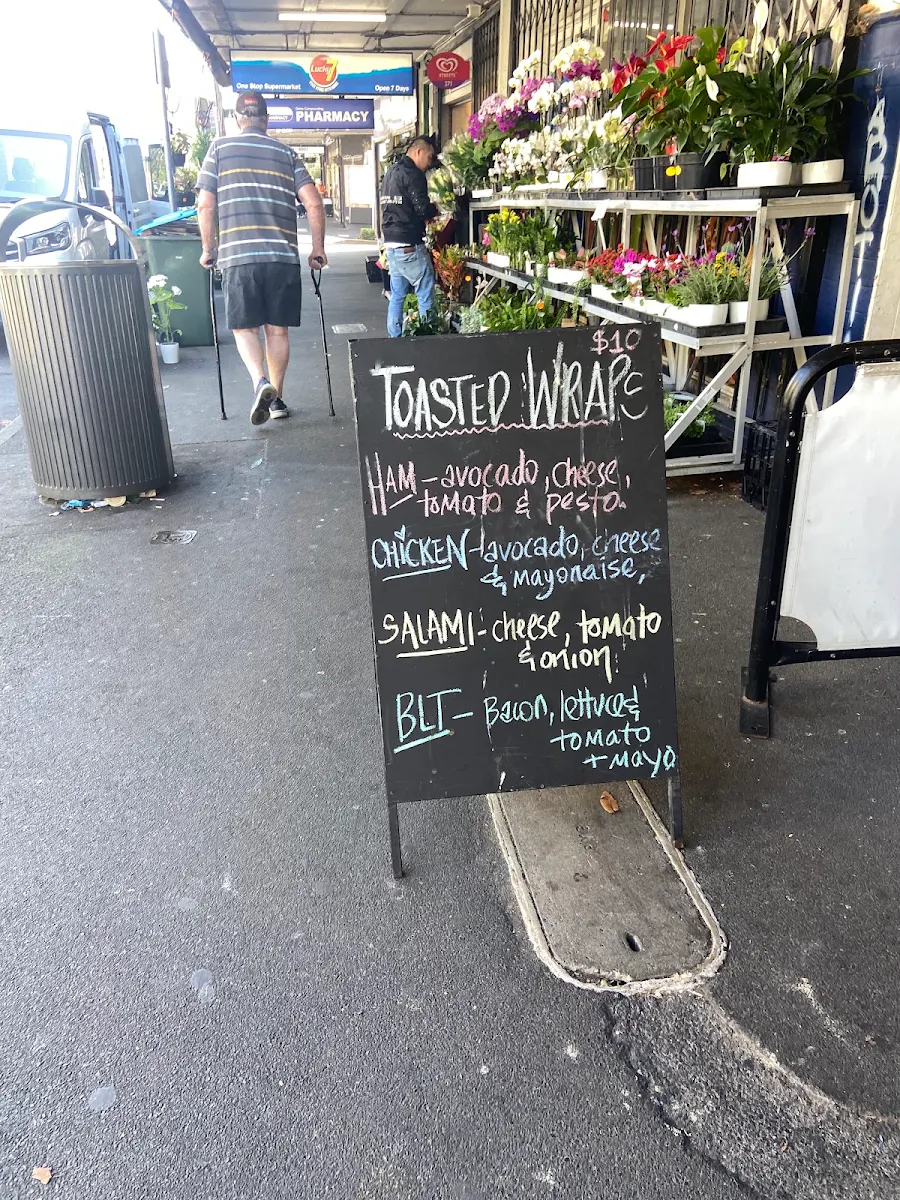 Lucky 7
One Stop Supermarket
Open 7 Days
PHARMACY
STREETS
$10
TOASTED WRAPS
HAM - avocado, cheese,
tomato & pesto.
CHICKEN - avocado, cheese
& mayonaise,
SALAMI - cheese, tomato
& onion
BLT - Bacon, lettuce &
tomato
+ mayo